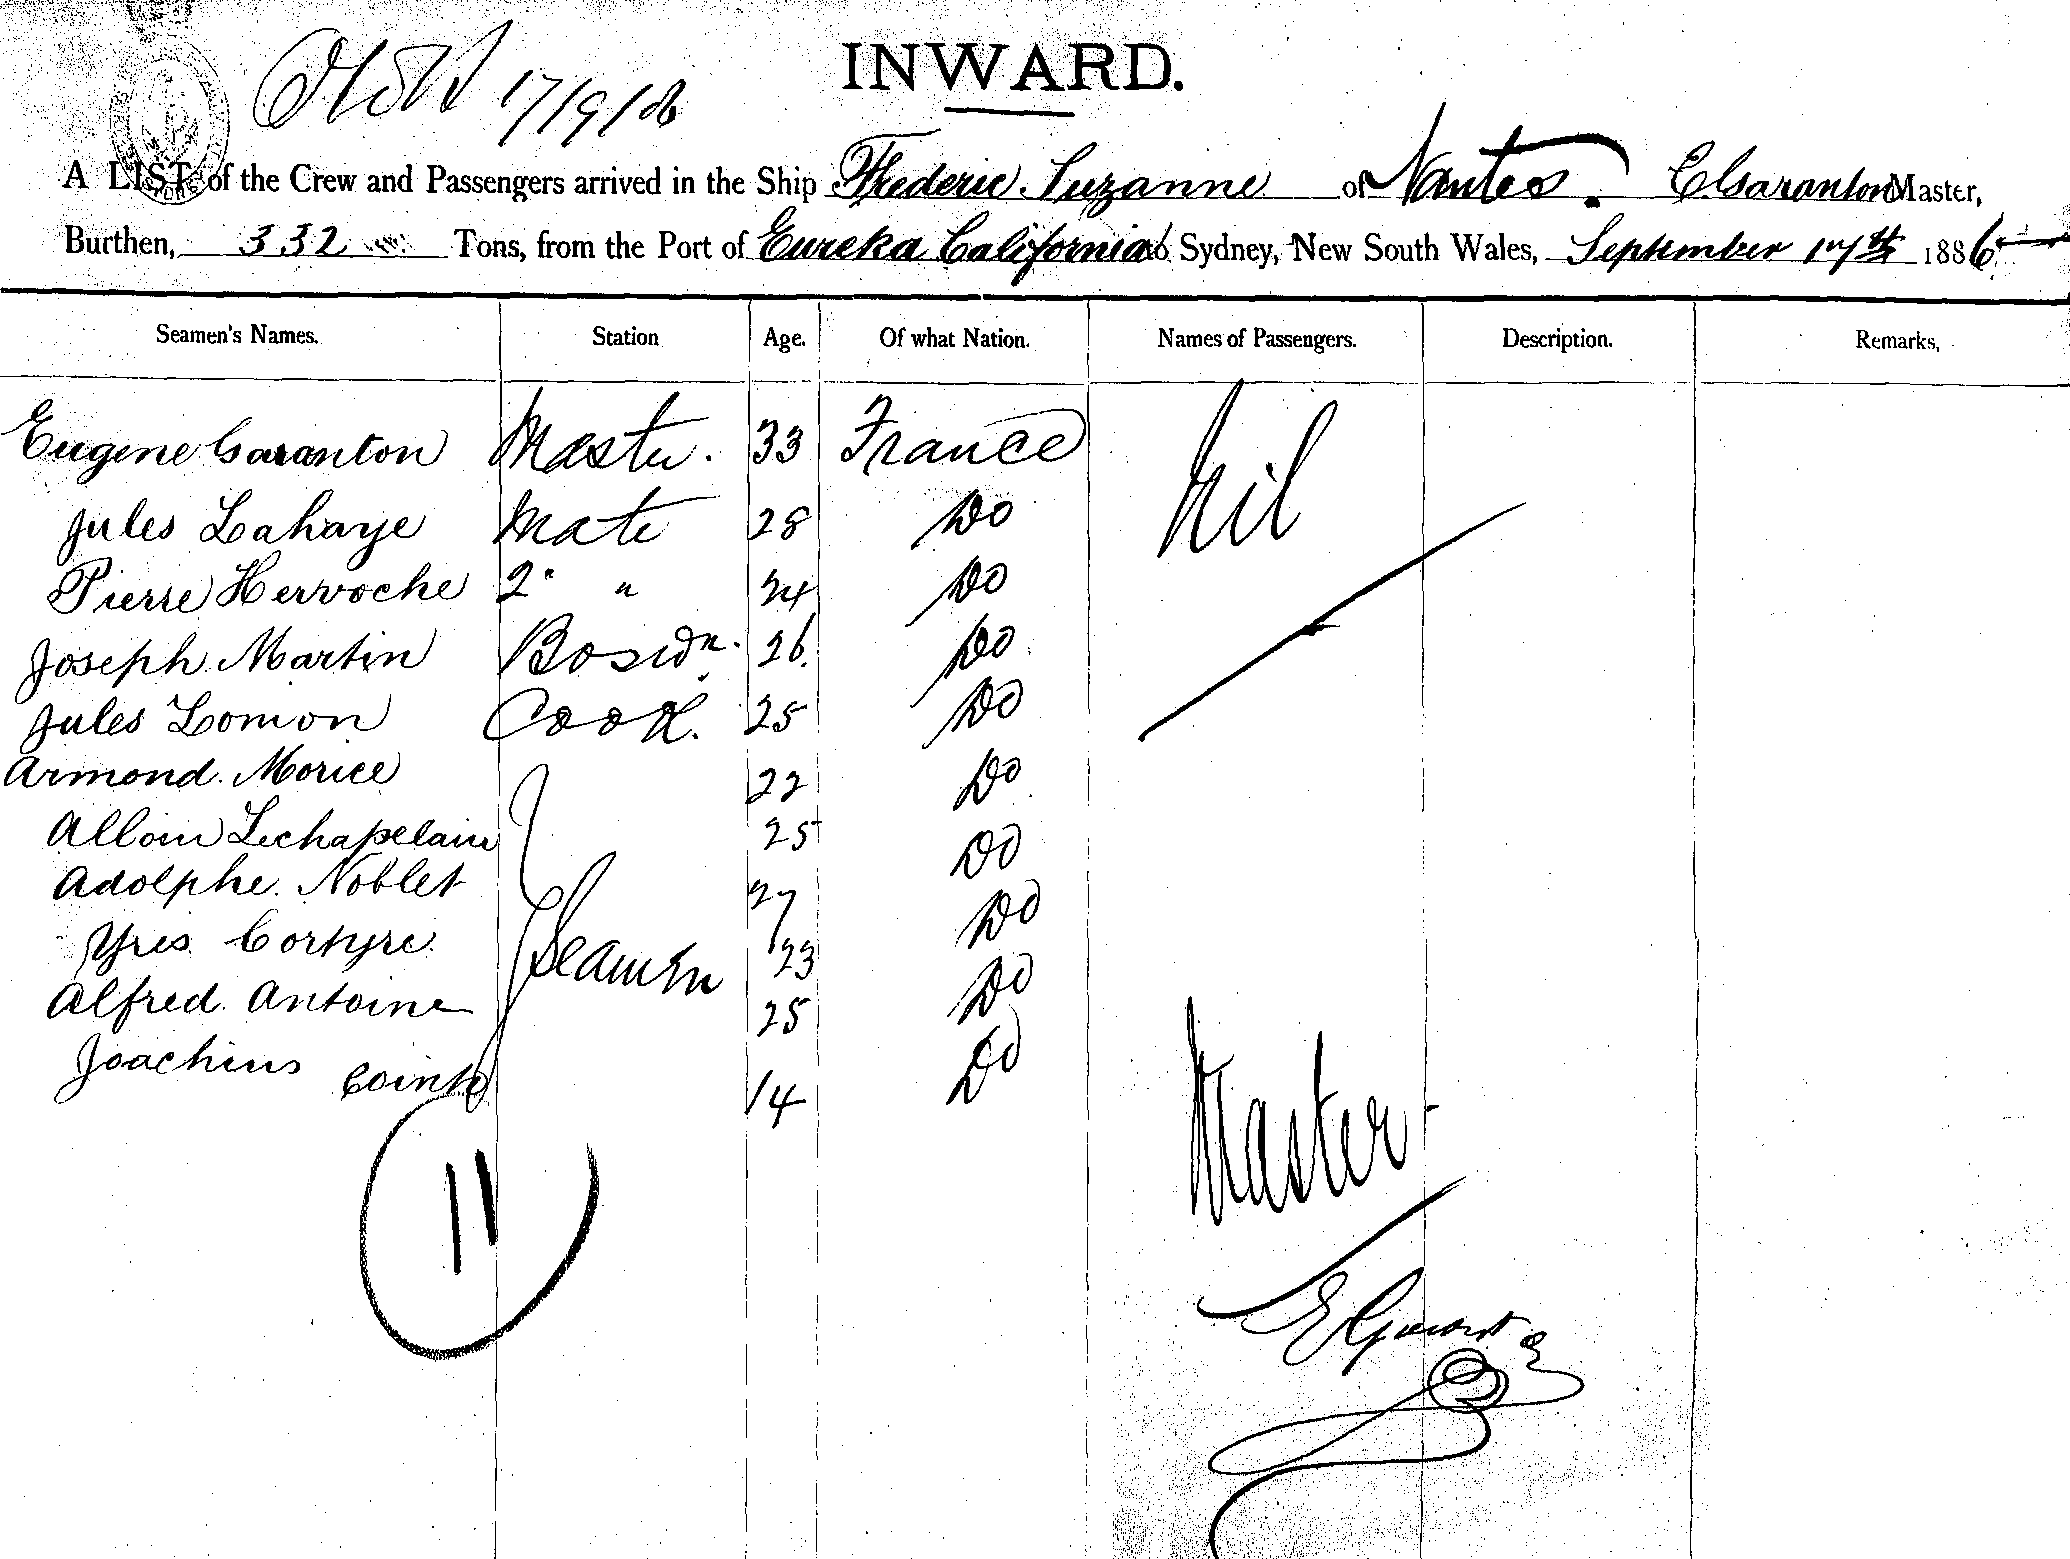 17/9/86
INWARD.
A LIST of the Crew and Passengers arrived in the Ship Frederic Suzanne of Nantes. E Garanton Master,
Burthen, 332 Tons, from the Port of Eureka California to Sydney, New South Wales, September 17th 1886
Seamen's Names. Station Age. Of what Nation. Names of Passengers. Description. Remarks,
Eugene Garanton Master. 33 France Nil
Jules Lahaye Mate 28 Do
Pierre Hervoche 2" " 24 Do
Joseph Martin Boswn. 26. Do
Jules Lomon Cook. 25 Do
Armond Morice 22 Do
Allain Lechapelain 25 Do
Adolphe Noblet 27 Do
Yves Cortyre Seamen 23 Do
Alfred Antoine 25 Do
Joachins Cointo 14 Do
11
Master